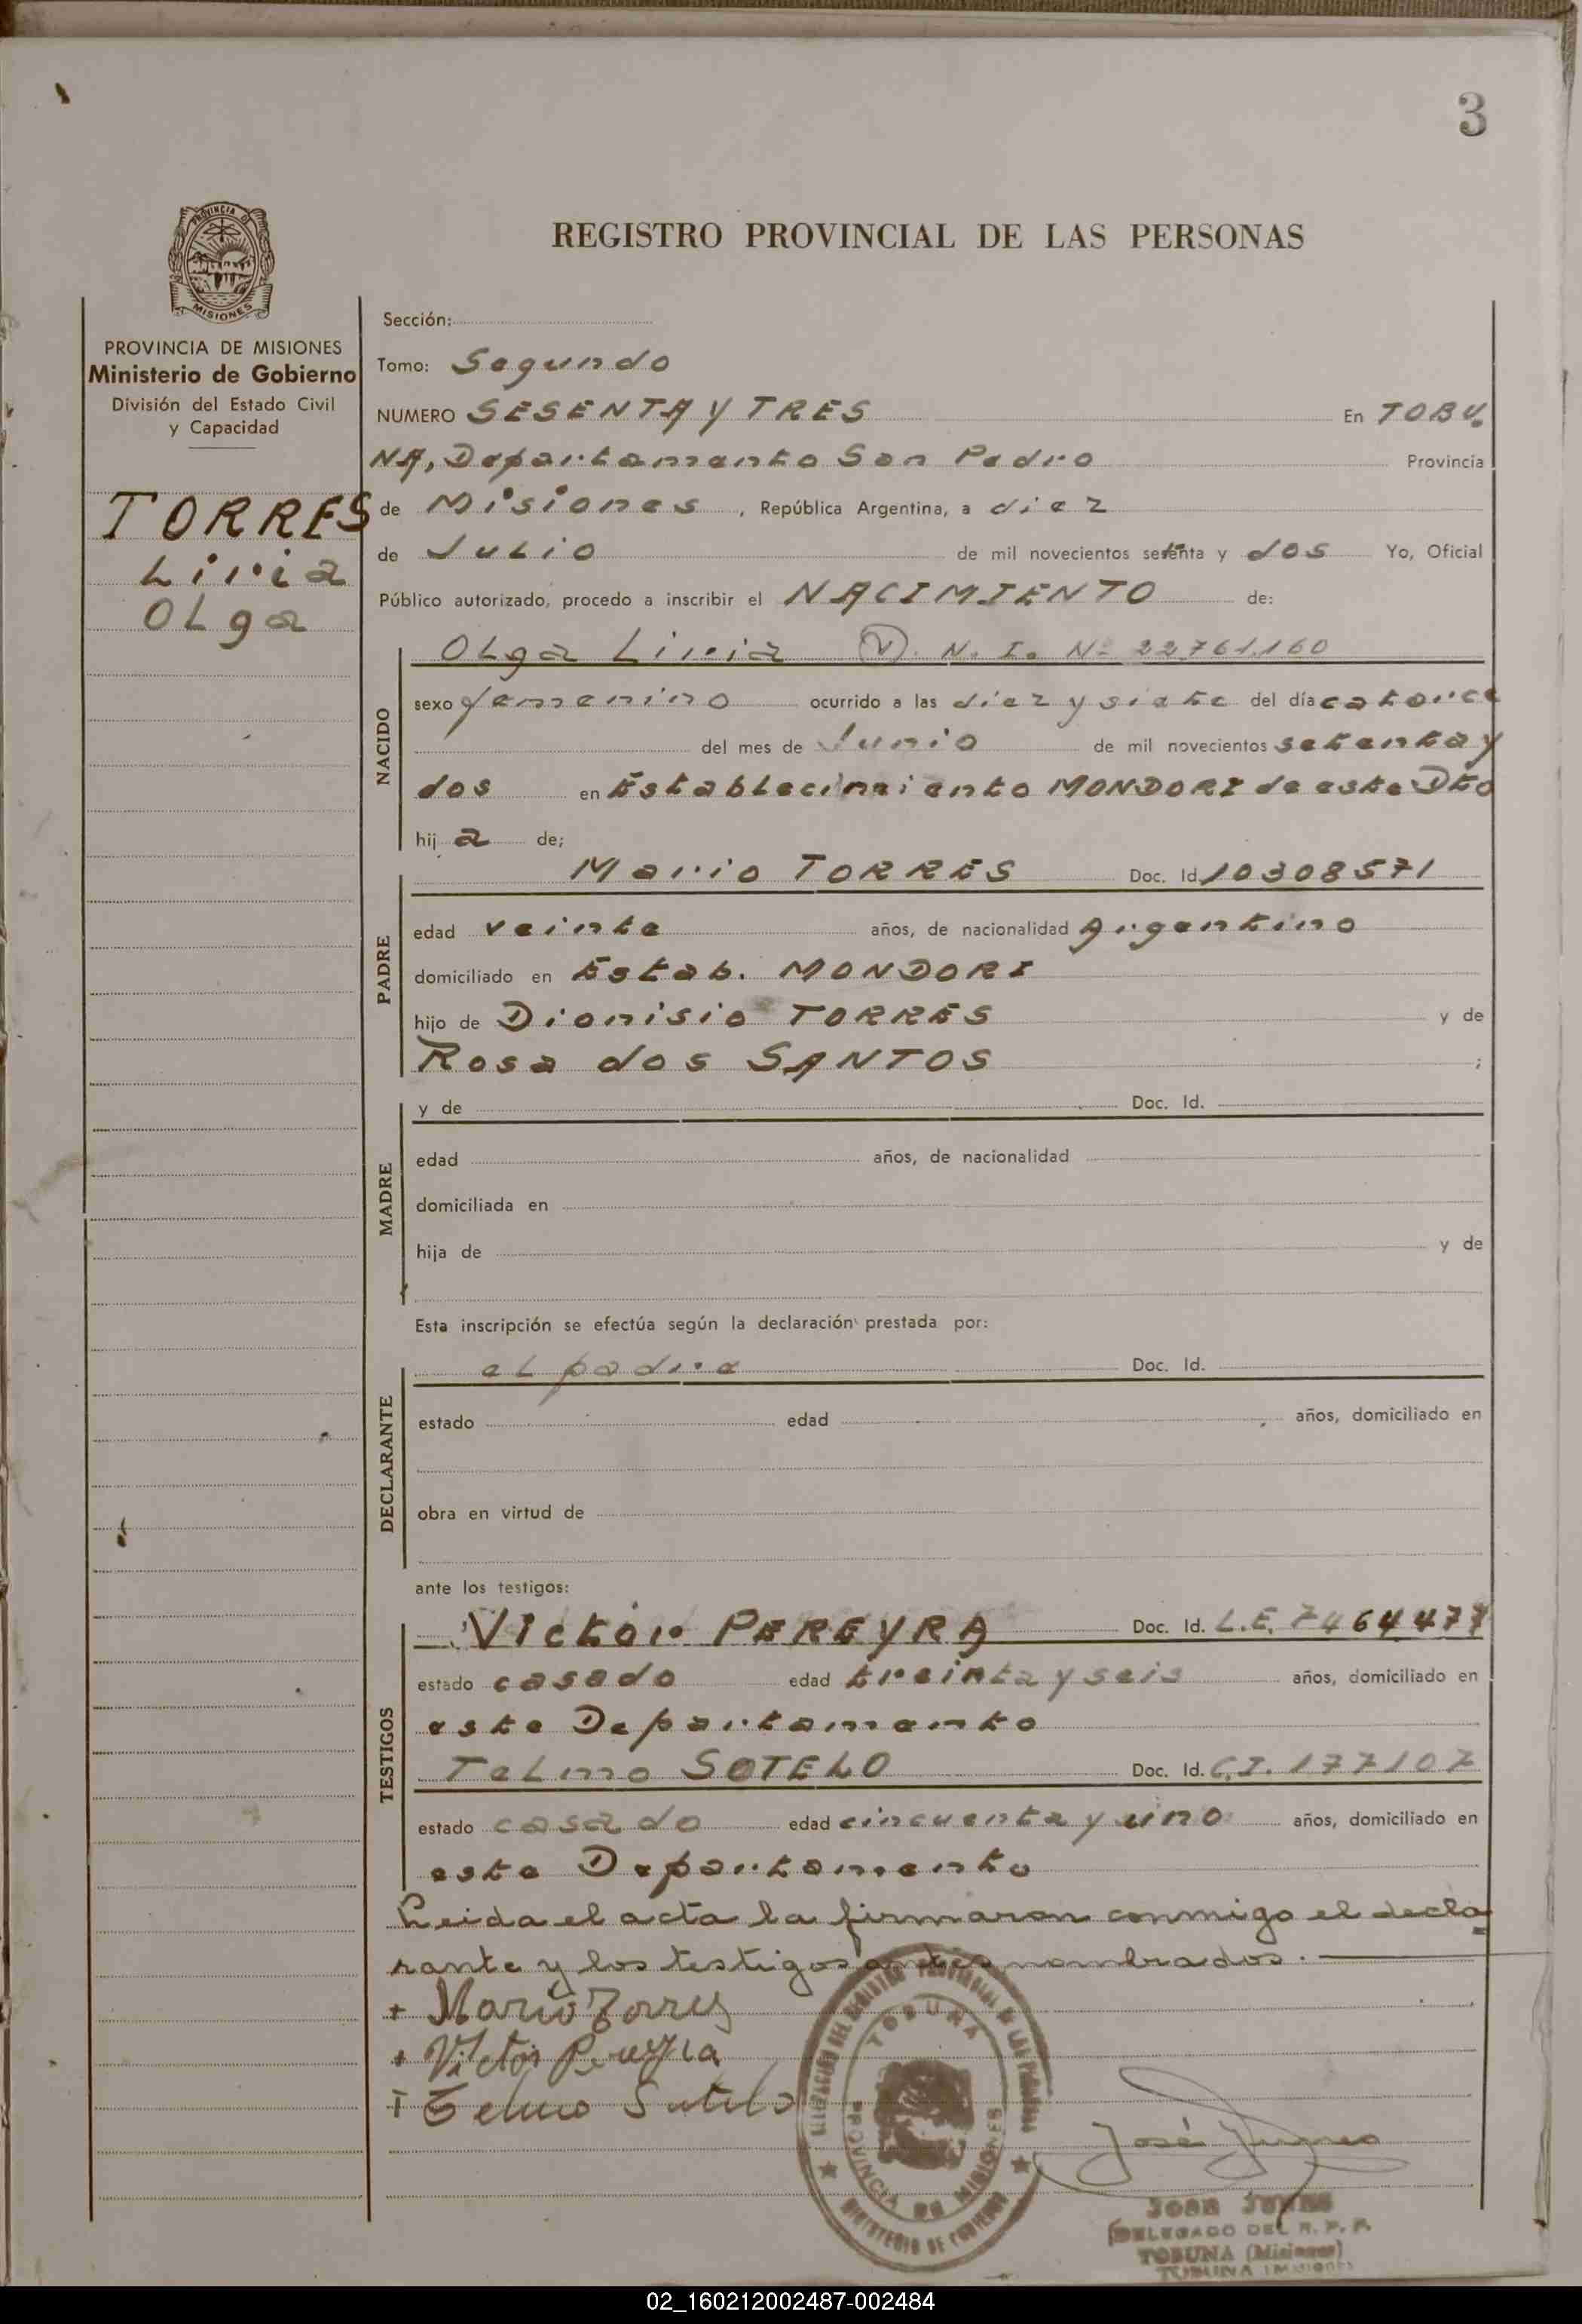 3
PROVINCIA DE
MISIONES
REGISTRO PROVINCIAL DE LAS PERSONAS
PROVINCIA DE MISIONES
Ministerio de Gobierno
División del Estado Civil
y Capacidad
TORRES
Liria
OLga
Sección:
Tomo: Segundo
NUMERO SESENTA Y TRES En TOBU
NA, Departamento San Pedro Provincia
de Misiones, República Argentina, a diez
de Julio de mil novecientos setenta y dos Yo, Oficial
Público autorizado, procedo a inscribir el NACIMIENTO de:
NACIDO
OLga Liria D. N. I. Nº 22761.160
sexo femenino ocurrido a las diez y siete del día catorce
del mes de Junio de mil novecientos setenta y
dos en Establecimiento MONDORI de este Dto
hij a de;
PADRE
Mario TORRES Doc. Id. 10308571
edad veinte años, de nacionalidad Argentino
domiciliado en Estab. MONDORI
hijo de Dionisio TORRES y de
Rosa dos SANTOS ;
MADRE
y de Doc. Id.
edad años, de nacionalidad
domiciliada en
hija de y de
Esta inscripción se efectúa según la declaración prestada por:
DECLARANTE
el padre Doc. Id.
estado edad años, domiciliado en
obra en virtud de
ante los testigos:
TESTIGOS
Victor PEREYRA Doc. Id. L.E. 7464477
estado casado edad treinta y seis años, domiciliado en
este Departamento
Telmo SOTELO Doc. Id. C.I. 177107
estado casado edad cincuenta y uno años, domiciliado en
este Departamento
Leida el acta la firmaron conmigo el decla
rante y los testigos antes nombrados.
+ Mario Torres
+ Victor Pereyra
+ Telmo Sotelo
TOBUNA
PROVINCIA DE MISIONES
MINISTERIO DE GOBIERNO
José
DELEGADO DEL R. P. P.
TOBUNA (Misiones)
TOBUNA (Misiones)
02_160212002487-002484